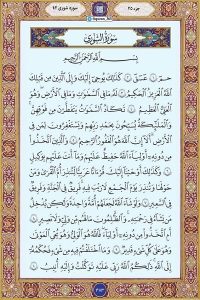 سوره شوری ۴۲
جزء ۲۵
سُورَةُ الشُّورَىٰ
بِسْمِ اللَّهِ الرَّحْمَٰنِ الرَّحِيمِ
حمٓ ۝ عٓسٓقٓ ۝ كَذَٰلِكَ يُوحِيٓ إِلَيْكَ وَإِلَى الَّذِينَ مِن قَبْلِكَ
اللَّهُ الْعَزِيزُ الْحَكِيمُ ۝ لَهُ مَا فِي السَّمَاوَاتِ وَمَا فِي الْأَرْضِ وَهُوَ
الْعَلِيُّ الْعَظِيمُ ۝ تَكَادُ السَّمَاوَاتُ يَتَفَطَّرْنَ مِن فَوْقِهِنَّ
وَالْمَلَائِكَةُ يُسَبِّحُونَ بِحَمْدِ رَبِّهِمْ وَيَسْتَغْفِرُونَ لِمَن فِي
الْأَرْضِ أَلَا إِنَّ اللَّهَ هُوَ الْغَفُورُ الرَّحِيمُ ۝ وَالَّذِينَ اتَّخَذُوا
مِن دُونِهِ أَوْلِيَاءَ اللَّهُ حَفِيظٌ عَلَيْهِمْ وَمَا أَنتَ عَلَيْهِم بِوَكِيلٍ
۝ وَكَذَٰلِكَ أَوْحَيْنَا إِلَيْكَ قُرْآنًا عَرَبِيًّا لِّتُنذِرَ أُمَّ الْقُرَىٰ وَمَنْ
حَوْلَهَا وَتُنذِرَ يَوْمَ الْجَمْعِ لَا رَيْبَ فِيهِ فَرِيقٌ فِي الْجَنَّةِ وَفَرِيقٌ
فِي السَّعِيرِ ۝ وَلَوْ شَاءَ اللَّهُ لَجَعَلَهُمْ أُمَّةً وَاحِدَةً وَلَٰكِن يُدْخِلُ
مَن يَشَاءُ فِي رَحْمَتِهِ وَالظَّالِمُونَ مَا لَهُم مِّن وَلِيٍّ وَلَا نَصِيرٍ ۝
أَمِ اتَّخَذُوا مِن دُونِهِ أَوْلِيَاءَ فَاللَّهُ هُوَ الْوَلِيُّ وَهُوَ يُحْيِي الْمَوْتَىٰ
وَهُوَ عَلَىٰ كُلِّ شَيْءٍ قَدِيرٌ ۝ وَمَا اخْتَلَفْتُمْ فِيهِ مِن شَيْءٍ فَحُكْمُهُ
إِلَى اللَّهِ ذَٰلِكُمُ اللَّهُ رَبِّي عَلَيْهِ تَوَكَّلْتُ وَإِلَيْهِ أُنِيبُ ۝